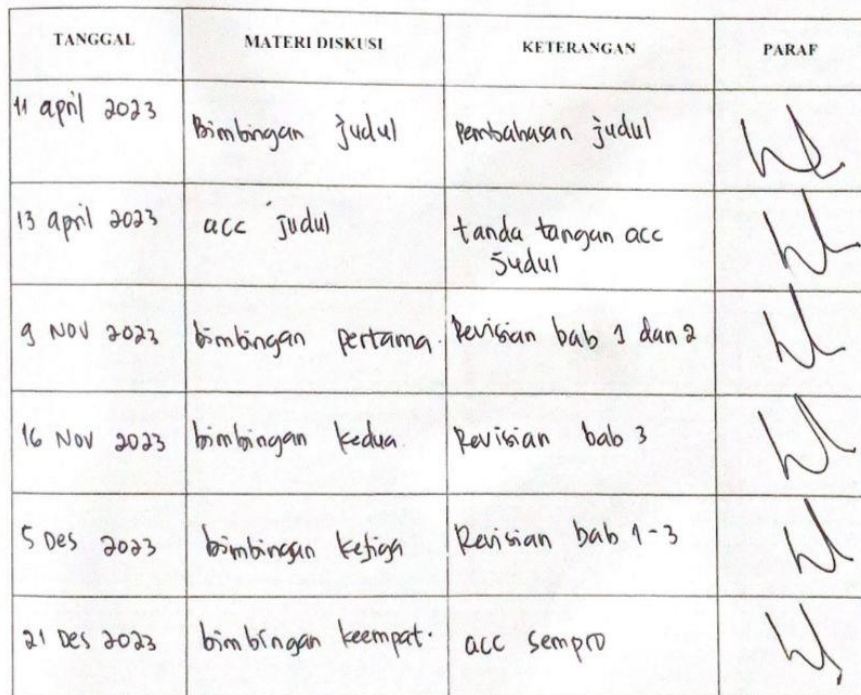 TANGGAL MATERI DISKUSI KETERANGAN PARAF
11 april 2023 Bimbingan judul Pembahasan judul
13 april 2023 acc judul tanda tangan acc
Judul
9 Nov 2023 bimbingan pertama. Revisian bab 1 dan 2
16 Nov 2023 bimbingan kedua. Revisian bab 3
5 Des 2023 bimbingan ketiga Revisian bab 1-3
21 Des 2023 bimbingan keempat. acc sempro